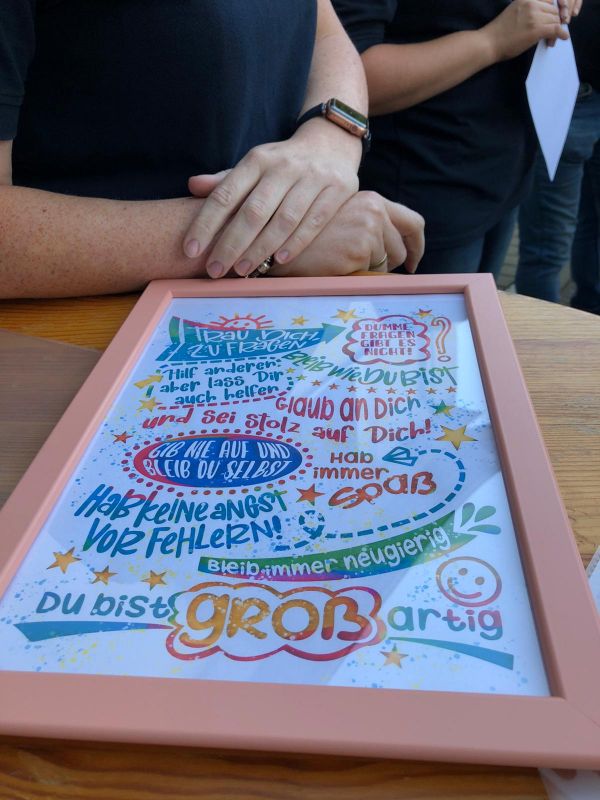 TRAU DICH
ZU FRAGEN
DUMME
FRAGEN
GIBT ES
NICHT!
?
Hilf anderen;
aber lass Dir
auch helfen
Bleib wie DU BIST
Glaub an Dich
und sei stolz auf Dich!
GIB NIE AUF UND
BLEIB DU SELBST
Hab
immer
Spaß
Hab keine Angst
vor Fehlern!
Bleib immer neugierig
Du bist großartig